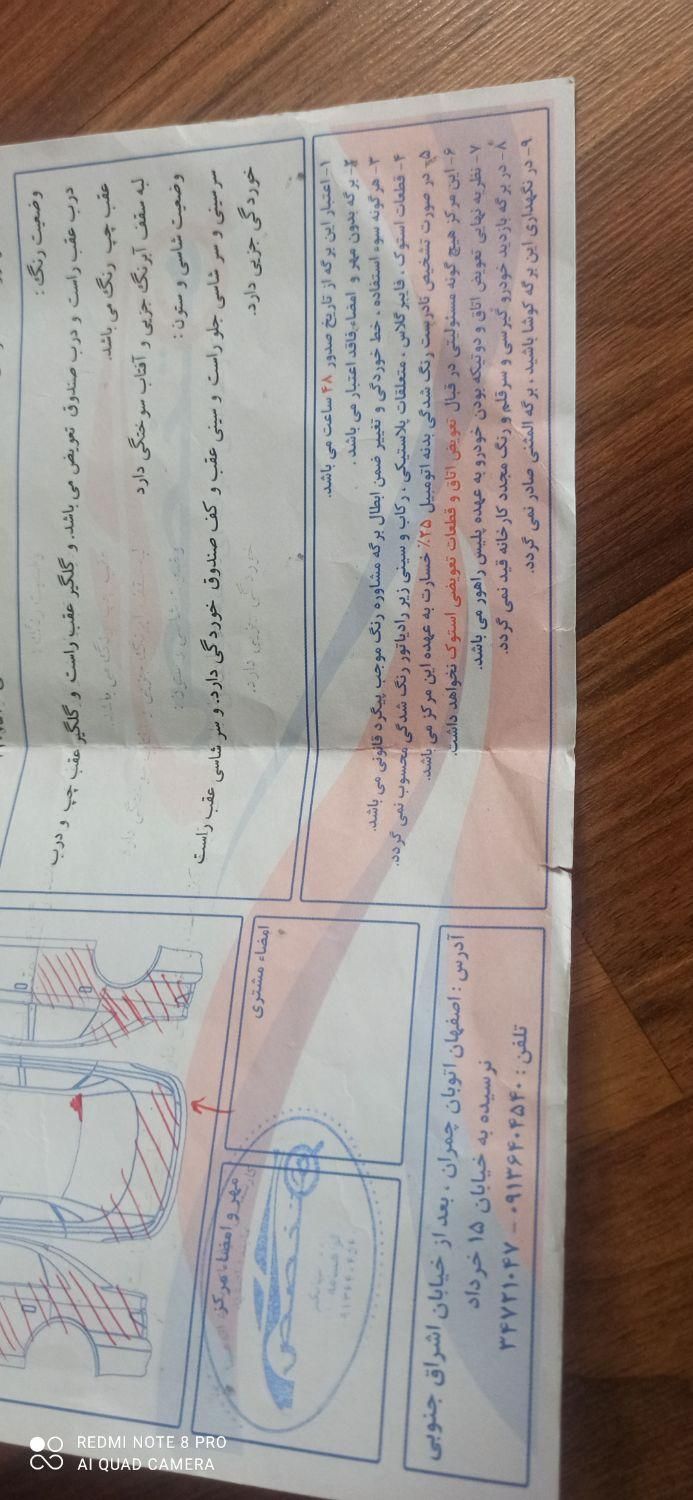 وضعیت رنگ :
درب عقب راست و درب صندوق تعویض می باشد. و گلگیر عقب راست و گلگیر عقب چپ و درب
عقب چپ رنگ می باشد.
لبه سقف آبرنگ جزیی و آفتاب سوختگی دارد
وضعیت شاسی و ستون :
سرسینی و سر شاسی جلو راست و سینی عقب و کف صندوق خوردگی دارد. و سر شاسی عقب راست
خوردگی جزیی دارد.
۱- اعتبار این برگه از تاریخ صدور ۴۸ ساعت می باشد.
۲- برگه بدون مهر و امضاء فاقد اعتبار می باشد .
۳- هرگونه سوء استفاده ، خط خوردگی و تغییر ضمن ابطال برگه مشاوره رنگ موجب پیگرد قانونی می باشد.
۴- قطعات استوک ، فایبرگلاس ، متعلقات پلاستیکی ، رکاب و سینی زیر رادیاتور رنگ شدگی محسوب نمی گردد.
۵- در صورت تشخیص نادرست رنگ شدگی بدنه اتومبیل ۲۵٪ خسارت به عهده این مرکز می باشد.
۶- این مرکز هیچ گونه مسئولیتی در قبال تعویض اتاق و قطعات تعویضی استوک نخواهد داشت.
۷- نظریه نهایی تعویض اتاق و دوتیکه بودن خودرو به عهده پلیس راهور می باشد.
۸- در برگه بازدید خودرو گیرسی و سرقلم و رنگ مجدد کارخانه قید نمی گردد.
۹- در نگهداری این برگه کوشا باشید ، برگه المثنی صادر نمی گردد.
امضاء مشتری
مهر و امضاء مرکز
تخصص
آدرس : اصفهان اتوبان چمران ، بعد از خیابان اشراق جنوبی
نرسیده به خیابان ۱۵ خرداد
تلفن : ۰۹۱۳۶۴۰۴۵۴۰ - ۳۴۷۲۱۰۴۷
REDMI NOTE 8 PRO
AI QUAD CAMERA